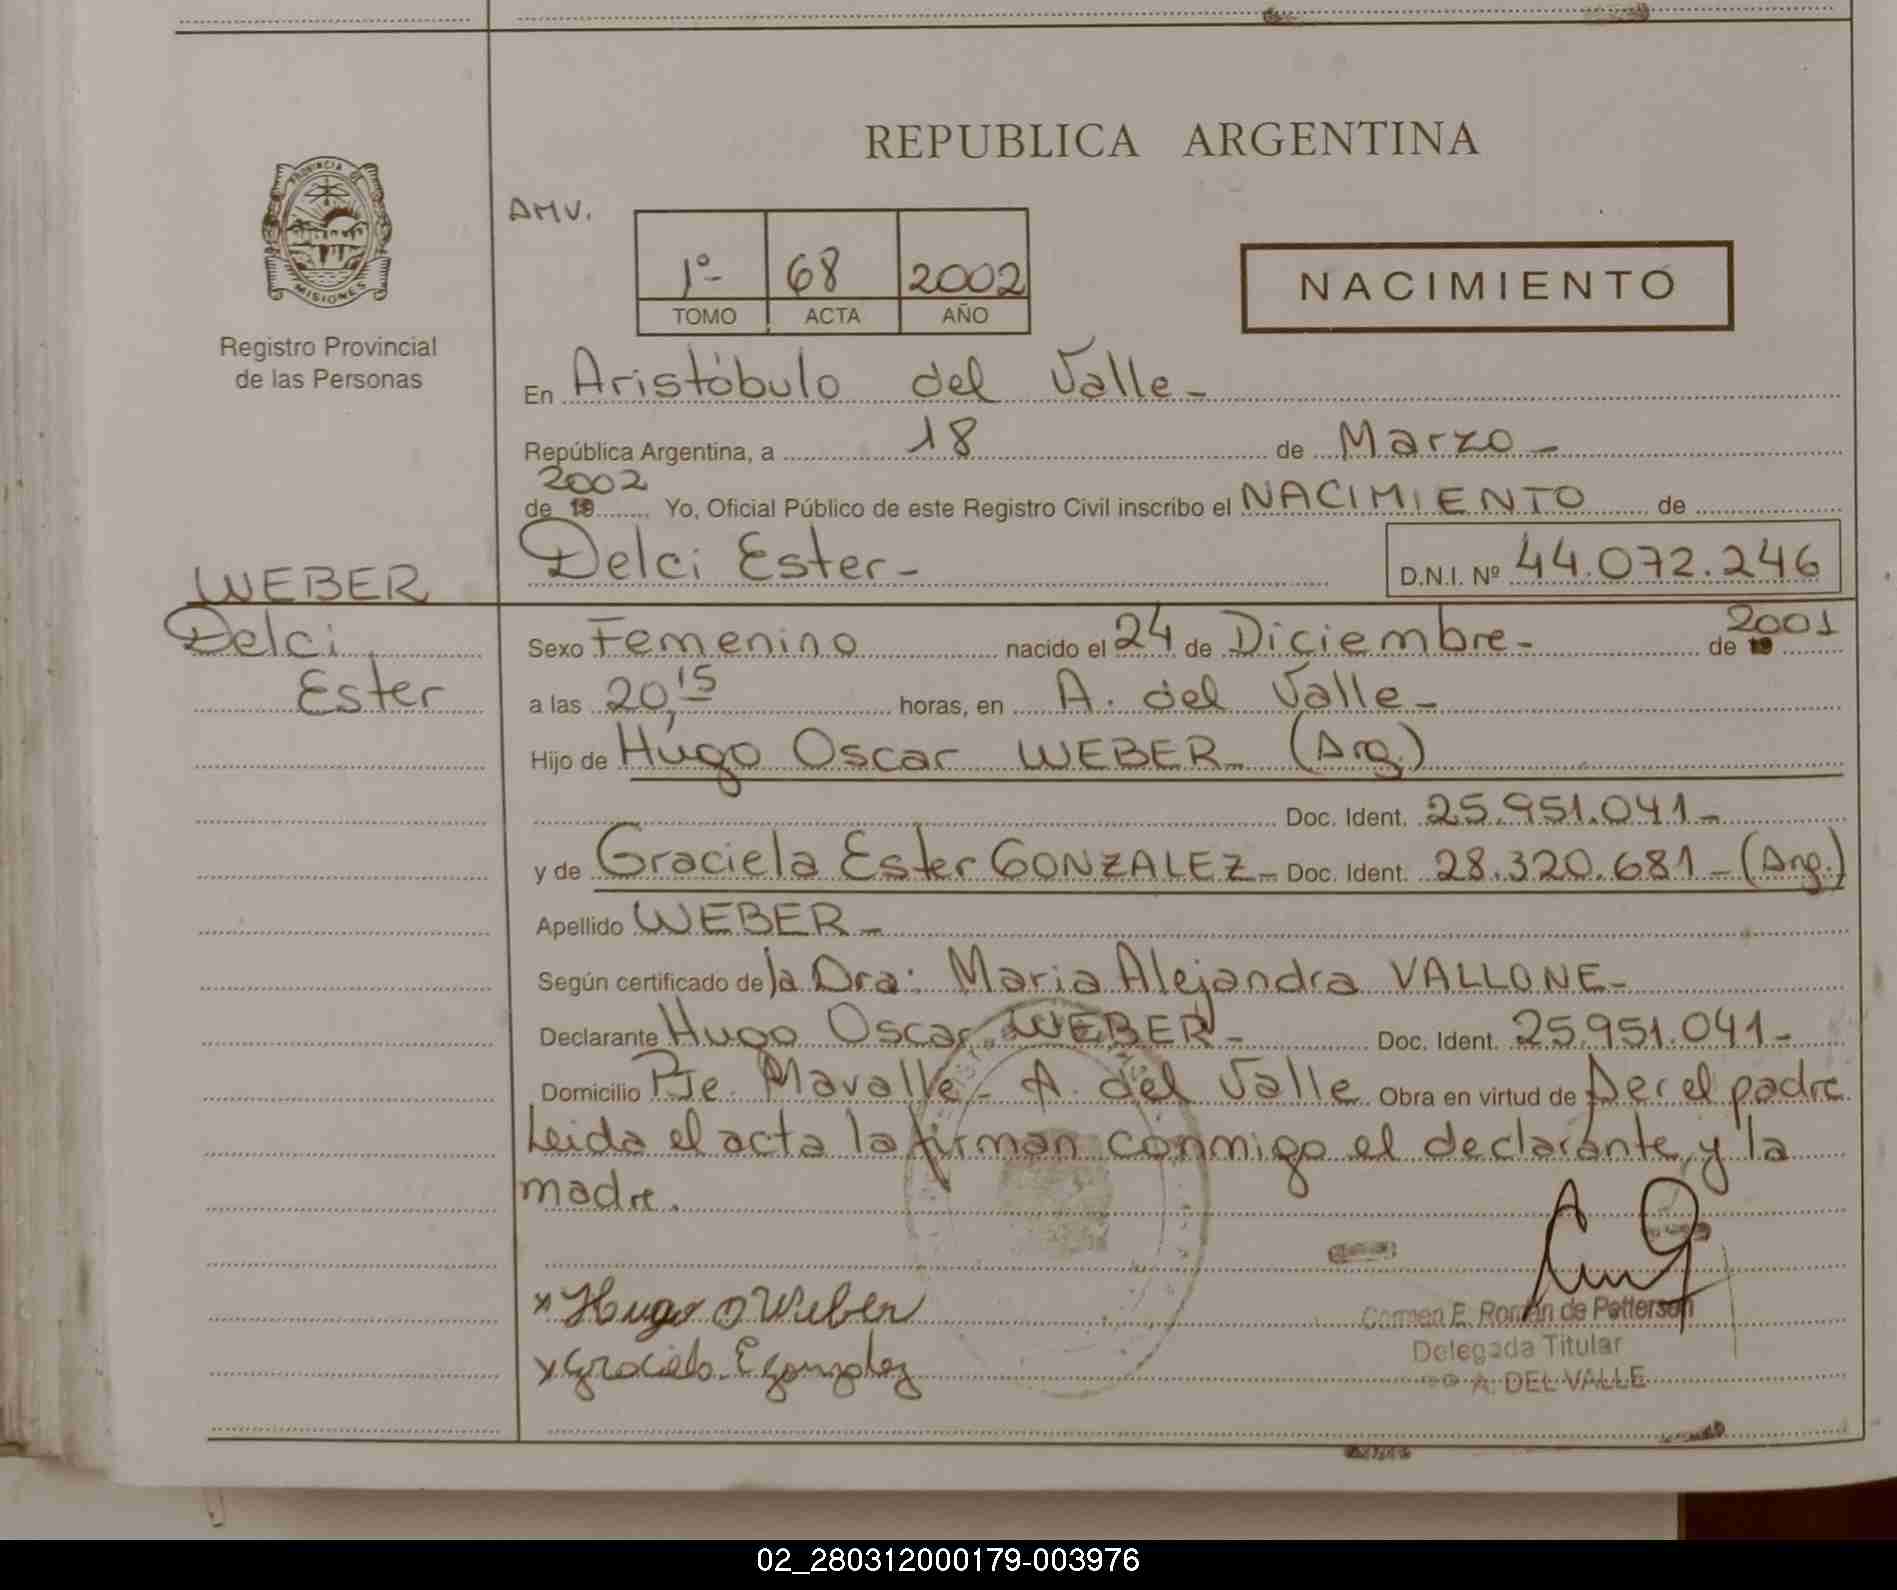 REPUBLICA ARGENTINA
PROVINCIA DE
MISIONES
Registro Provincial
de las Personas
AMV.
1º 68 2002
TOMO ACTA AÑO
NACIMIENTO
En Aristóbulo del Valle-
República Argentina, a 18 de Marzo-
2002
de 19 Yo, Oficial Público de este Registro Civil inscribo el NACIMIENTO de
Delci Ester- D.N.I. Nº 44.072.246
WEBER
Delci
Ester
Sexo Femenino nacido el 24 de Diciembre- de 19 2001
a las 20,15 horas, en A. del Valle-
Hijo de Hugo Oscar WEBER- (Arg.)
Doc. Ident. 25.951.041-
y de Graciela Ester GONZALEZ- Doc. Ident. 28.320.681-(Arg.)
Apellido WEBER-
Según certificado de la Dra: Maria Alejandra VALLONE-
Declarante Hugo Oscar WEBER- Doc. Ident. 25.951.041-
Domicilio Pje. Mavalle- A. del Valle Obra en virtud de ser el padre
Leida el acta la firman conmigo el declarante, y la
madre.
x Hugo O Weber
x Graciela E Gonzalez
Carmen E. Román de Patterson
Delegada Titular
A. DEL VALLE
02_280312000179-003976